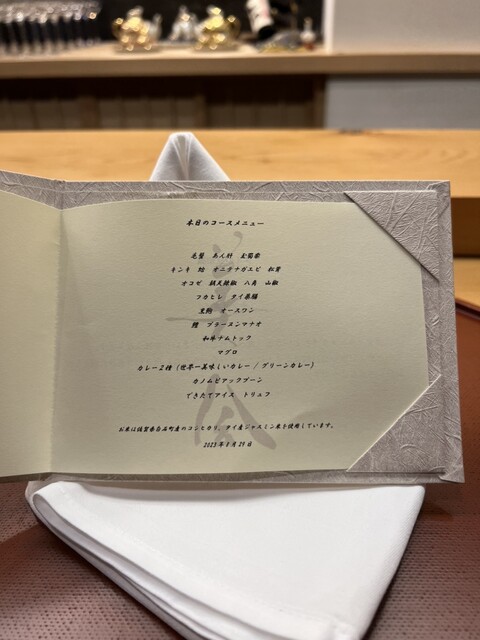 本日のコースメニュー
毛蟹　あん肝
キンキ　鮑　オニテナガエビ　松茸
オコゼ　朝天辣椒　八角　山椒
フカヒレ　タイ燕窩
黒鮑　オースワン
鱧　プラーヌンマナオ
和牛ナムトック
マグロ
カレー2種（世界一美味しいカレー / グリーンカレー）
カノムピアックプーン
できたてアイス　トリュフ
お米は佐賀県白石町産のコシヒカリ、タイ産ジャスミン米を使用しています。
2023年8月29日